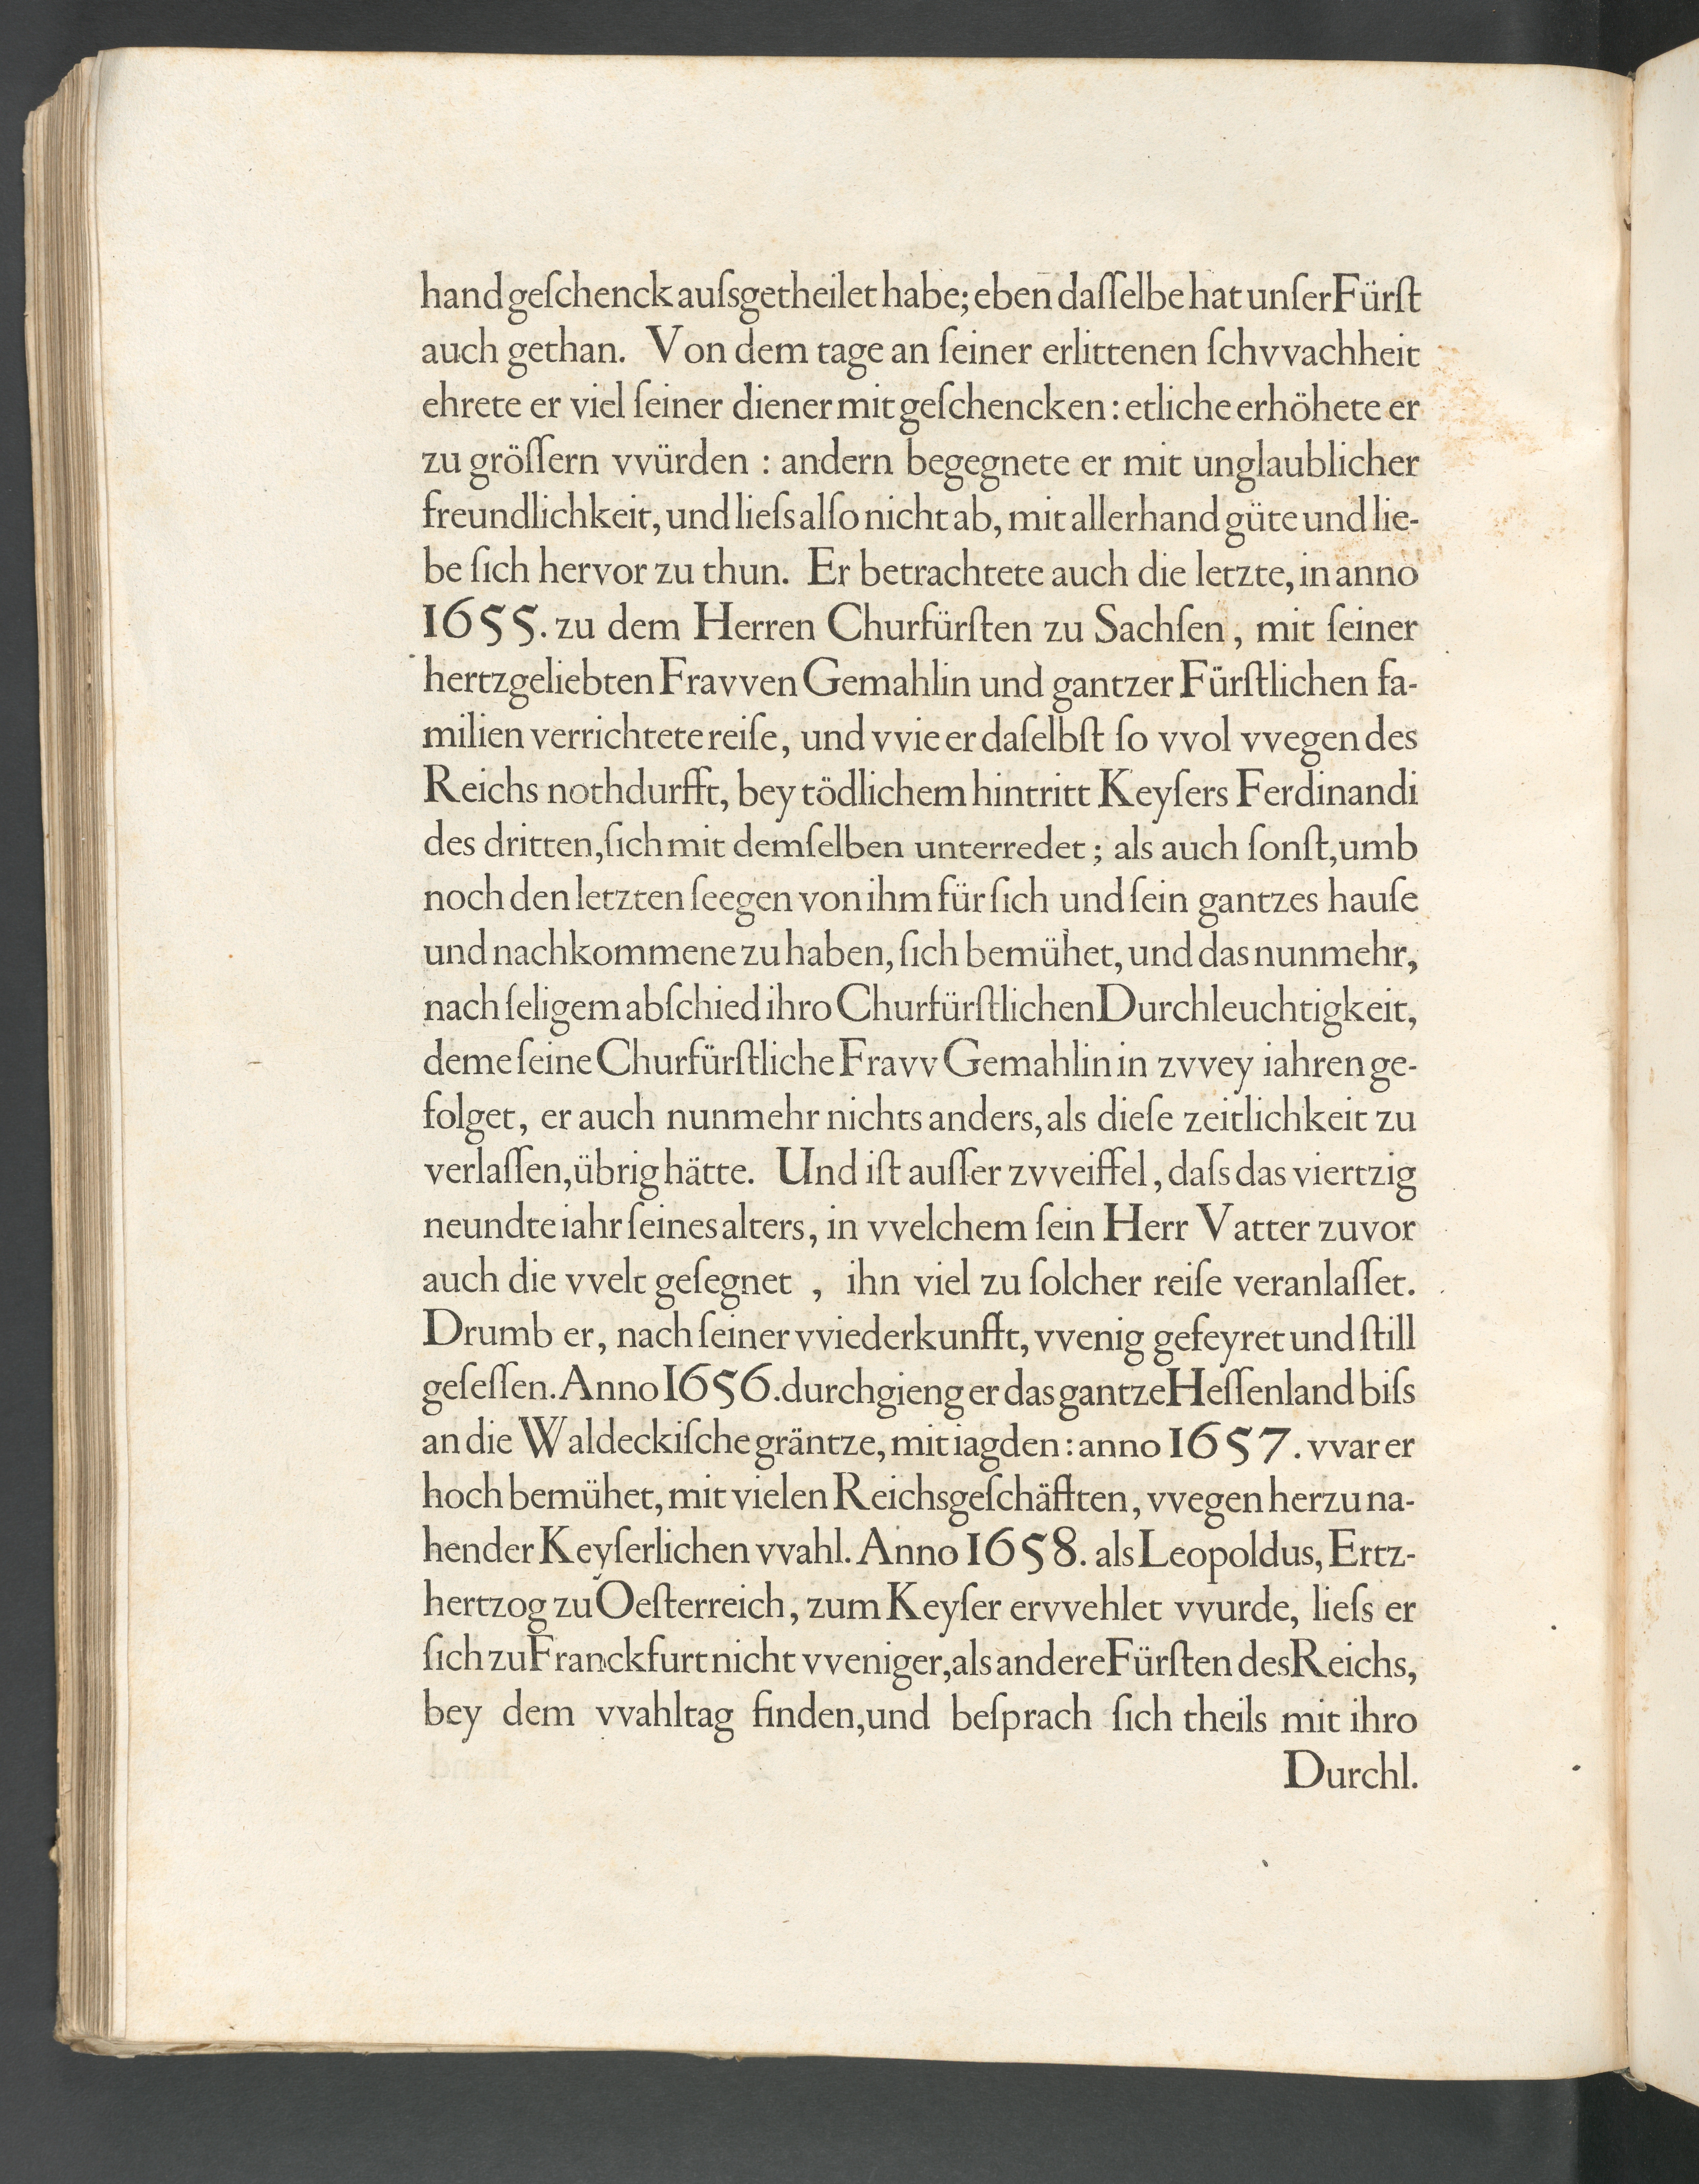 handgeſchenck auſsgetheilet habe; eben daſſelbe hat unſer Fürſt
auch gethan. Von dem tage an ſeiner erlittenen ſchvvachheit
ehrete er viel ſeiner diener mit geſchencken: etliche erhöhete er
zu gröſſern vvürden : andern begegnete er mit unglaublicher
freundlichkeit, und lieſs alſo nicht ab, mit allerhand güte und lie-
be ſich hervor zu thun. Er betrachtete auch die letzte, in anno
1655. zu dem Herren Churfürſten zu Sachſen, mit ſeiner
hertzgeliebten Fravven Gemahlin und gantzer Fürſtlichen fa-
milien verrichtete reiſe, und vvie er daſelbſt ſo vvol vvegen des
Reichs nothdurfft, bey tödlichem hintritt Keyſers Ferdinandi
des dritten, ſich mit demſelben unterredet; als auch ſonſt, umb
noch den letzten ſeegen von ihm für ſich und ſein gantzes hauſe
und nachkommene zu haben, ſich bemühet, und das nunmehr,
nach ſeligem abſchied ihro Churfürſtlichen Durchleuchtigkeit,
deme ſeine Churfürſtliche Fravv Gemahlin in zvvey iahren ge-
folget, er auch nunmehr nichts anders, als dieſe zeitlichkeit zu
verlaſſen, übrig hätte. Und iſt auſſer zvveiffel, daſs das viertzig
neundte iahr ſeines alters, in vvelchem ſein Herr Vatter zuvor
auch die vvelt geſegnet , ihn viel zu ſolcher reiſe veranlaſſet.
Drumb er, nach ſeiner vviederkunfft, vvenig gefeyret und ſtill
geſeſſen. Anno 1656. durchgieng er das gantze Heſſenland biſs
an die Waldeckiſche gräntze, mit iagden: anno 1657. vvar er
hoch bemühet, mit vielen Reichsgeſchäfften, vvegen herzu na-
hender Keyſerlichen vvahl. Anno 1658. als Leopoldus, Ertz-
hertzog zu Oeſterreich, zum Keyſer ervvehlet vvurde, lieſs er
ſich zu Franckfurt nicht vveniger, als andere Fürſten des Reichs,
bey dem vvahltag finden, und beſprach ſich theils mit ihro
Durchl.